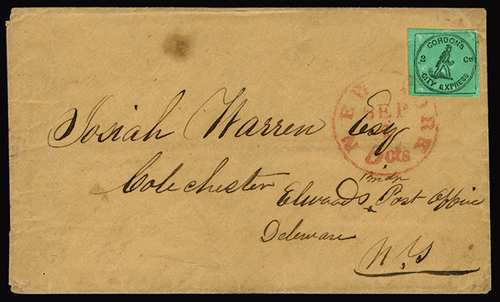 GORDON'S
2 Cts
CITY EXPRESS
NEW YORK
SEP
5 cts
Josiah Warren Esq
Colechester
Elwoods Post Office
Deleware
N.Y